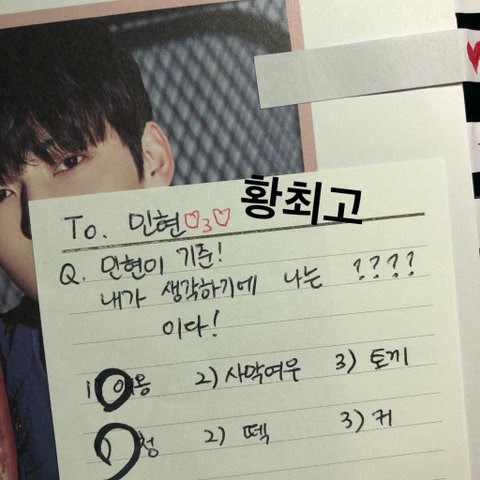 To. 민현♡3♡
황최고
Q. 민현이 기준!
내가 생각하기에 나는 ????
이다!
1) 여우 2) 사막여우 3) 토끼
청 2) 떽 3) 커